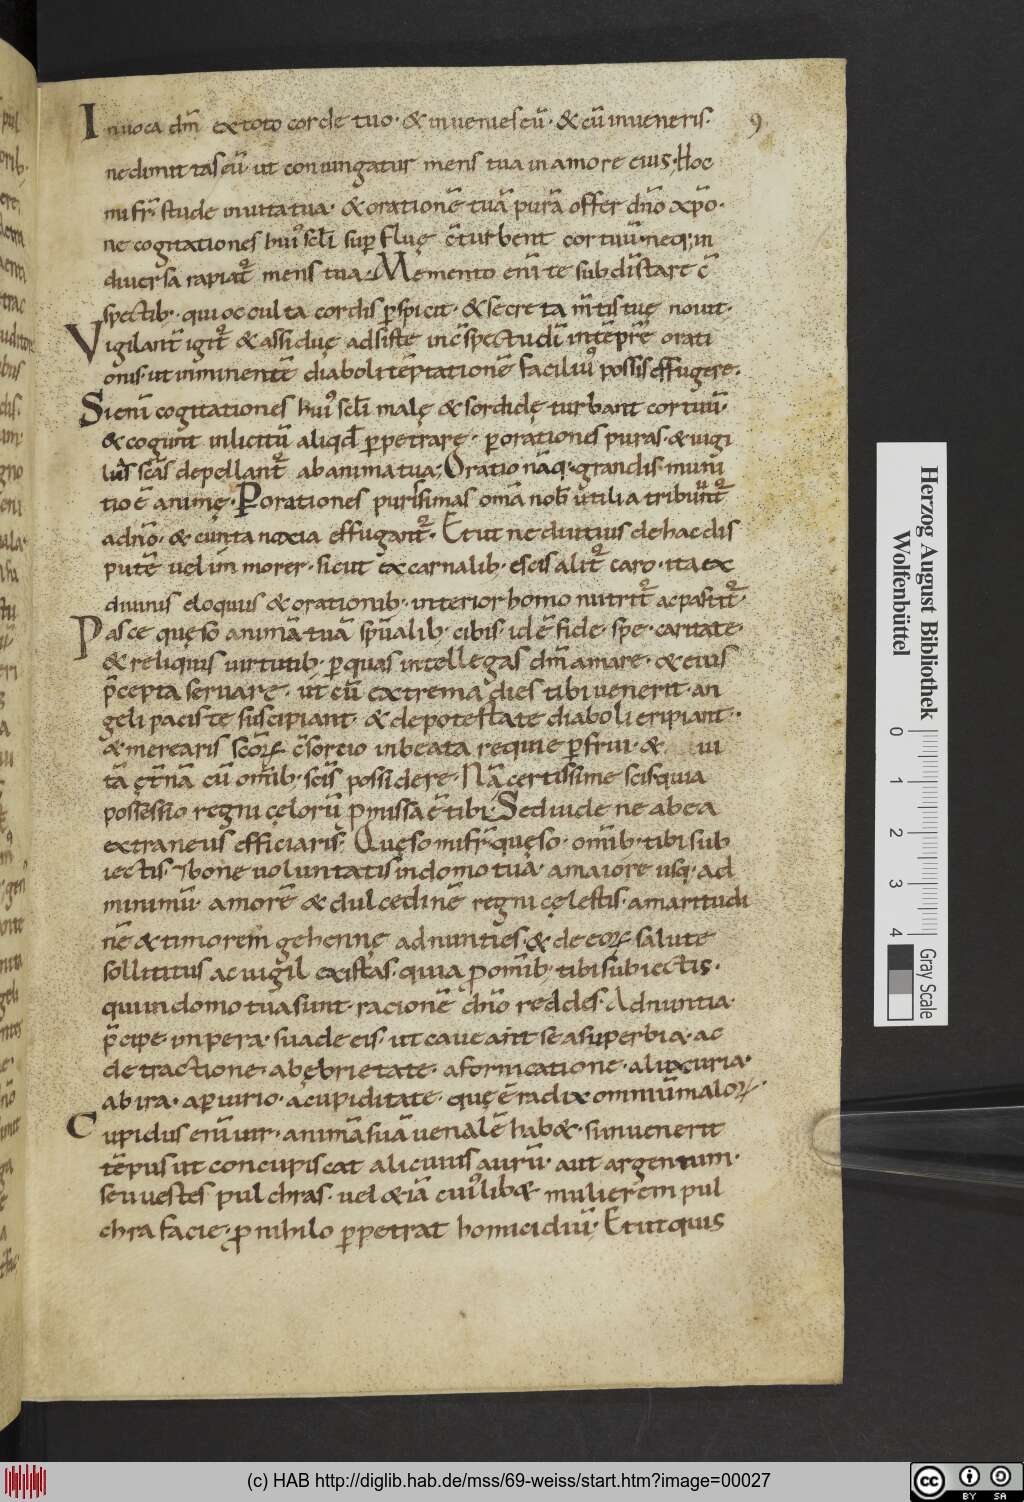 Inuoca dm̄ ex toto corde tuo· & inuenies eū· & cū inueneris·
9
ne dimittas eū· ut coniungatur mens tua in amore eius· Hoc
mi fr̄ stude in uita tua· & orationē tuā purā offer dn̄o xp̄o·
ne cogitationes hui᾿ scl̄i sup̄flue c̄turbent cor tuū· neq; in
diuersa rapiat᷑ mens tua· Memento eni te sub distante c̄
spectib;· qui occulta cordis p̲spicit· & secreta m̄tis tuę nouit·
Vigilant̄ igit᷑ & assidue adsiste in c̄spectu di int̄ep̄re orati
onis· ut inminentē diaboli tēptationē faciliu᾿ possis effugere·
Si enī cogitationes hui᾿ scl̄i malę & sordidę turbant cor tuū·
& cogunt inlicitū aliqd̄ p̲petrare· p̲ orationes puras· & uigi
lias scās depellant᷑ ab anima tua· Oratio nāq;· grandis· muni
tio ē animę· P̲ orationes purissimas omā nob̄ utilia tribuunt᷑
a dn̄o· & cuncta noxia effugant᷑· Et ut ne diutius de hac dis
putē uel īmmorer· sicut ex carnalib;· escis alit᷑ caro· ita ex
diuinis eloquiis & orationib;· interior homo nutrit᷑ ac pascit᷑·
Pasce quęso animā tuā sp̄ualib;· cibis· id ē fide· spe· caritate·
& reliquis uirtutib;· p̲ quas intellegas dm̄ amare· & eius
p̄cepta seruare· ut cū extrema dies tibi uenerit· an
geli pacis te suscipiant· & de potestate diaboli eripiant·
& merearis scōꝝ c̄sortio in beata requie p̲frui· & ui
tā ęt̄nā cū omīb;· scīs possidere· Nā certissime scis quia
possessio regni cęlorū p̱missa ē tibi· Sed uide ne ab ea
extraneus efficiaris· Quęso mi fr̄ quęso· omīb;· tibi sub
iectis· ⁊ bone uoluntatis in domo tua· a maiore usq; ad
minimū· amorē & dulcedinē regni cęlestis· amaritudi
nē & timorem gehennę adnunties· & de eoꝝ salute
sollititus ac uigil existas· quia p̱ omīb;· tibi subiectis·
qui in domo tua sunt· racionē dn̄o reddes· Adnuntia·
p̄cipe· inpera· suade eis· ut caueant se a superbia· ac
detractione· ab ębrietate· a fornicatione· a luxuria·
ab ira· a p̲iurio· a cupiditate· quę ē radix omniū maloꝝ·
Cupidus enī uir· animā suā uenalē hab&· si inuenerit
tēpus ut concupiscat alicuius aurū· aut argentum·
seu uestes pulchras· uel &iā cui᾿lib& mulierem pul
chra facie· p̱ nihilo p̲petrat homicidiū· Et ut quis
Herzog August Bibliothek
Wolfenbüttel
0 1 2 3 4
Gray Scale
(c) HAB http://diglib.hab.de/mss/69-weiss/start.htm?image=00027
cc BY SA